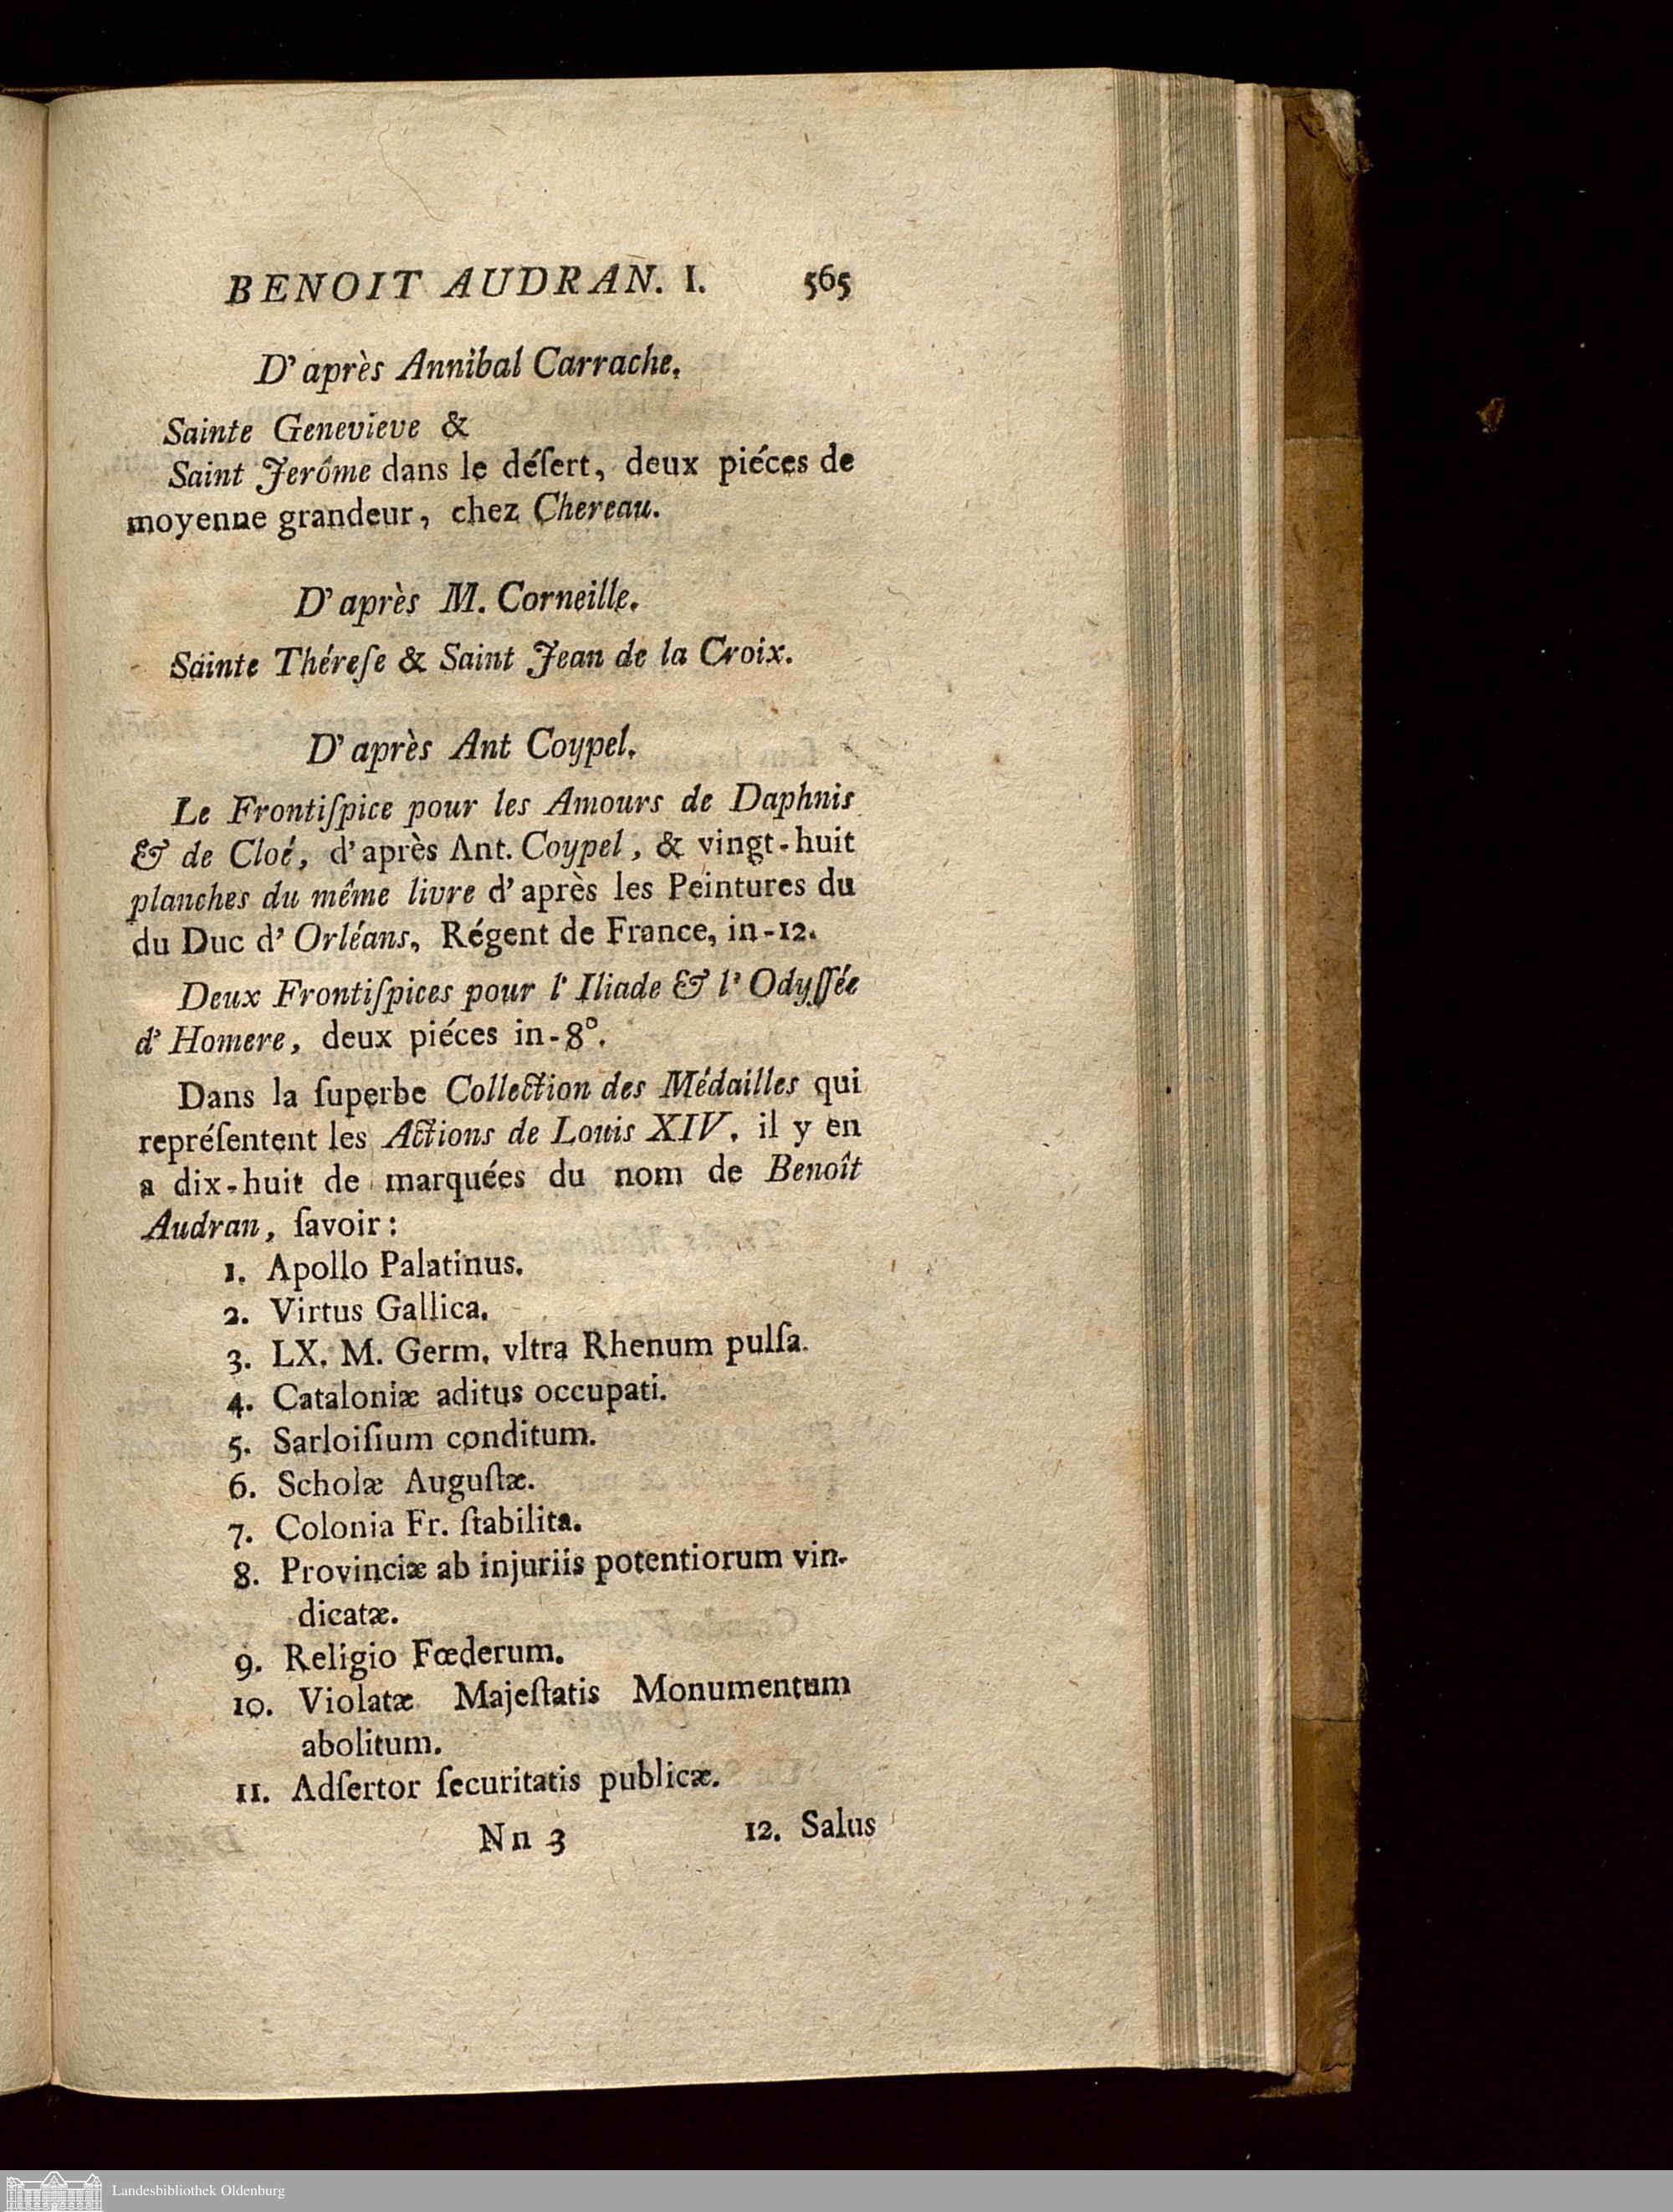 BENOIT AUDRAN. I. 565
D' après Annibal Carrache.
Sainte Genevieve &
Saint Jerôme dans le déſert, deux piéces de
moyenne grandeur, chez Chereau.
D' après M. Corneille.
Sainte Théreſe & Saint Jean de la Croix.
D' après Ant Coypel.
Le Frontiſpice pour les Amours de Daphnis
& de Cloé, d' après Ant. Coypel, & vingt-huit
planches du même livre d' après les Peintures du
du Duc d' Orléans, Régent de France, in-12.
Deux Frontiſpices pour l' Iliade & l' Odyſſée
d' Homere, deux piéces in-8°.
Dans la ſuperbe Collection des Médailles qui
repréſentent les Actions de Louis XIV. il y en
a dix-huit de marquées du nom de Benoît
Audran, ſavoir:
1. Apollo Palatinus.
2. Virtus Gallica.
3. LX. M. Germ. vltra Rhenum pulſa.
4. Cataloniæ aditus occupati.
5. Sarloiſium conditum.
6. Scholæ Auguſtæ.
7. Colonia Fr. ſtabilita.
8. Provinciæ ab injuriis potentiorum vin-
dicatæ.
9. Religio Fœderum.
10. Violatæ Majeſtatis Monumentum
abolitum.
11. Adſertor ſecuritatis publicæ.
Nn 3 12. Salus
Landesbibliothek Oldenburg